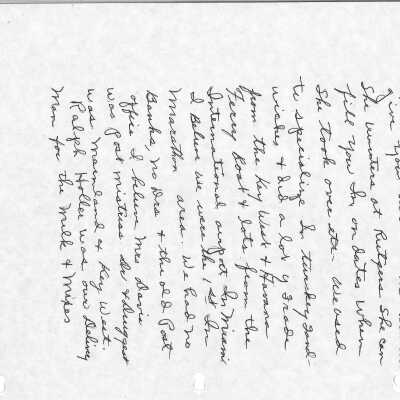 give you
She winters at Rutgers She can
fill you In on dates When
She took over etc. We used
to specialize In turkey Sand-
wiches & did a lot of trade
from the Key West & Havana
Ferry Boat & lots from the
International airport In Miami
I Believe we were the 1st In
Marathon area. We had no
Banks, no Drs & the old Post
office I believe Mrs Davis
was Post mistress Dr & Druggest
was Mainland & Key West.
Ralph Holler was our Delivey
Man for the Milk & Mixes